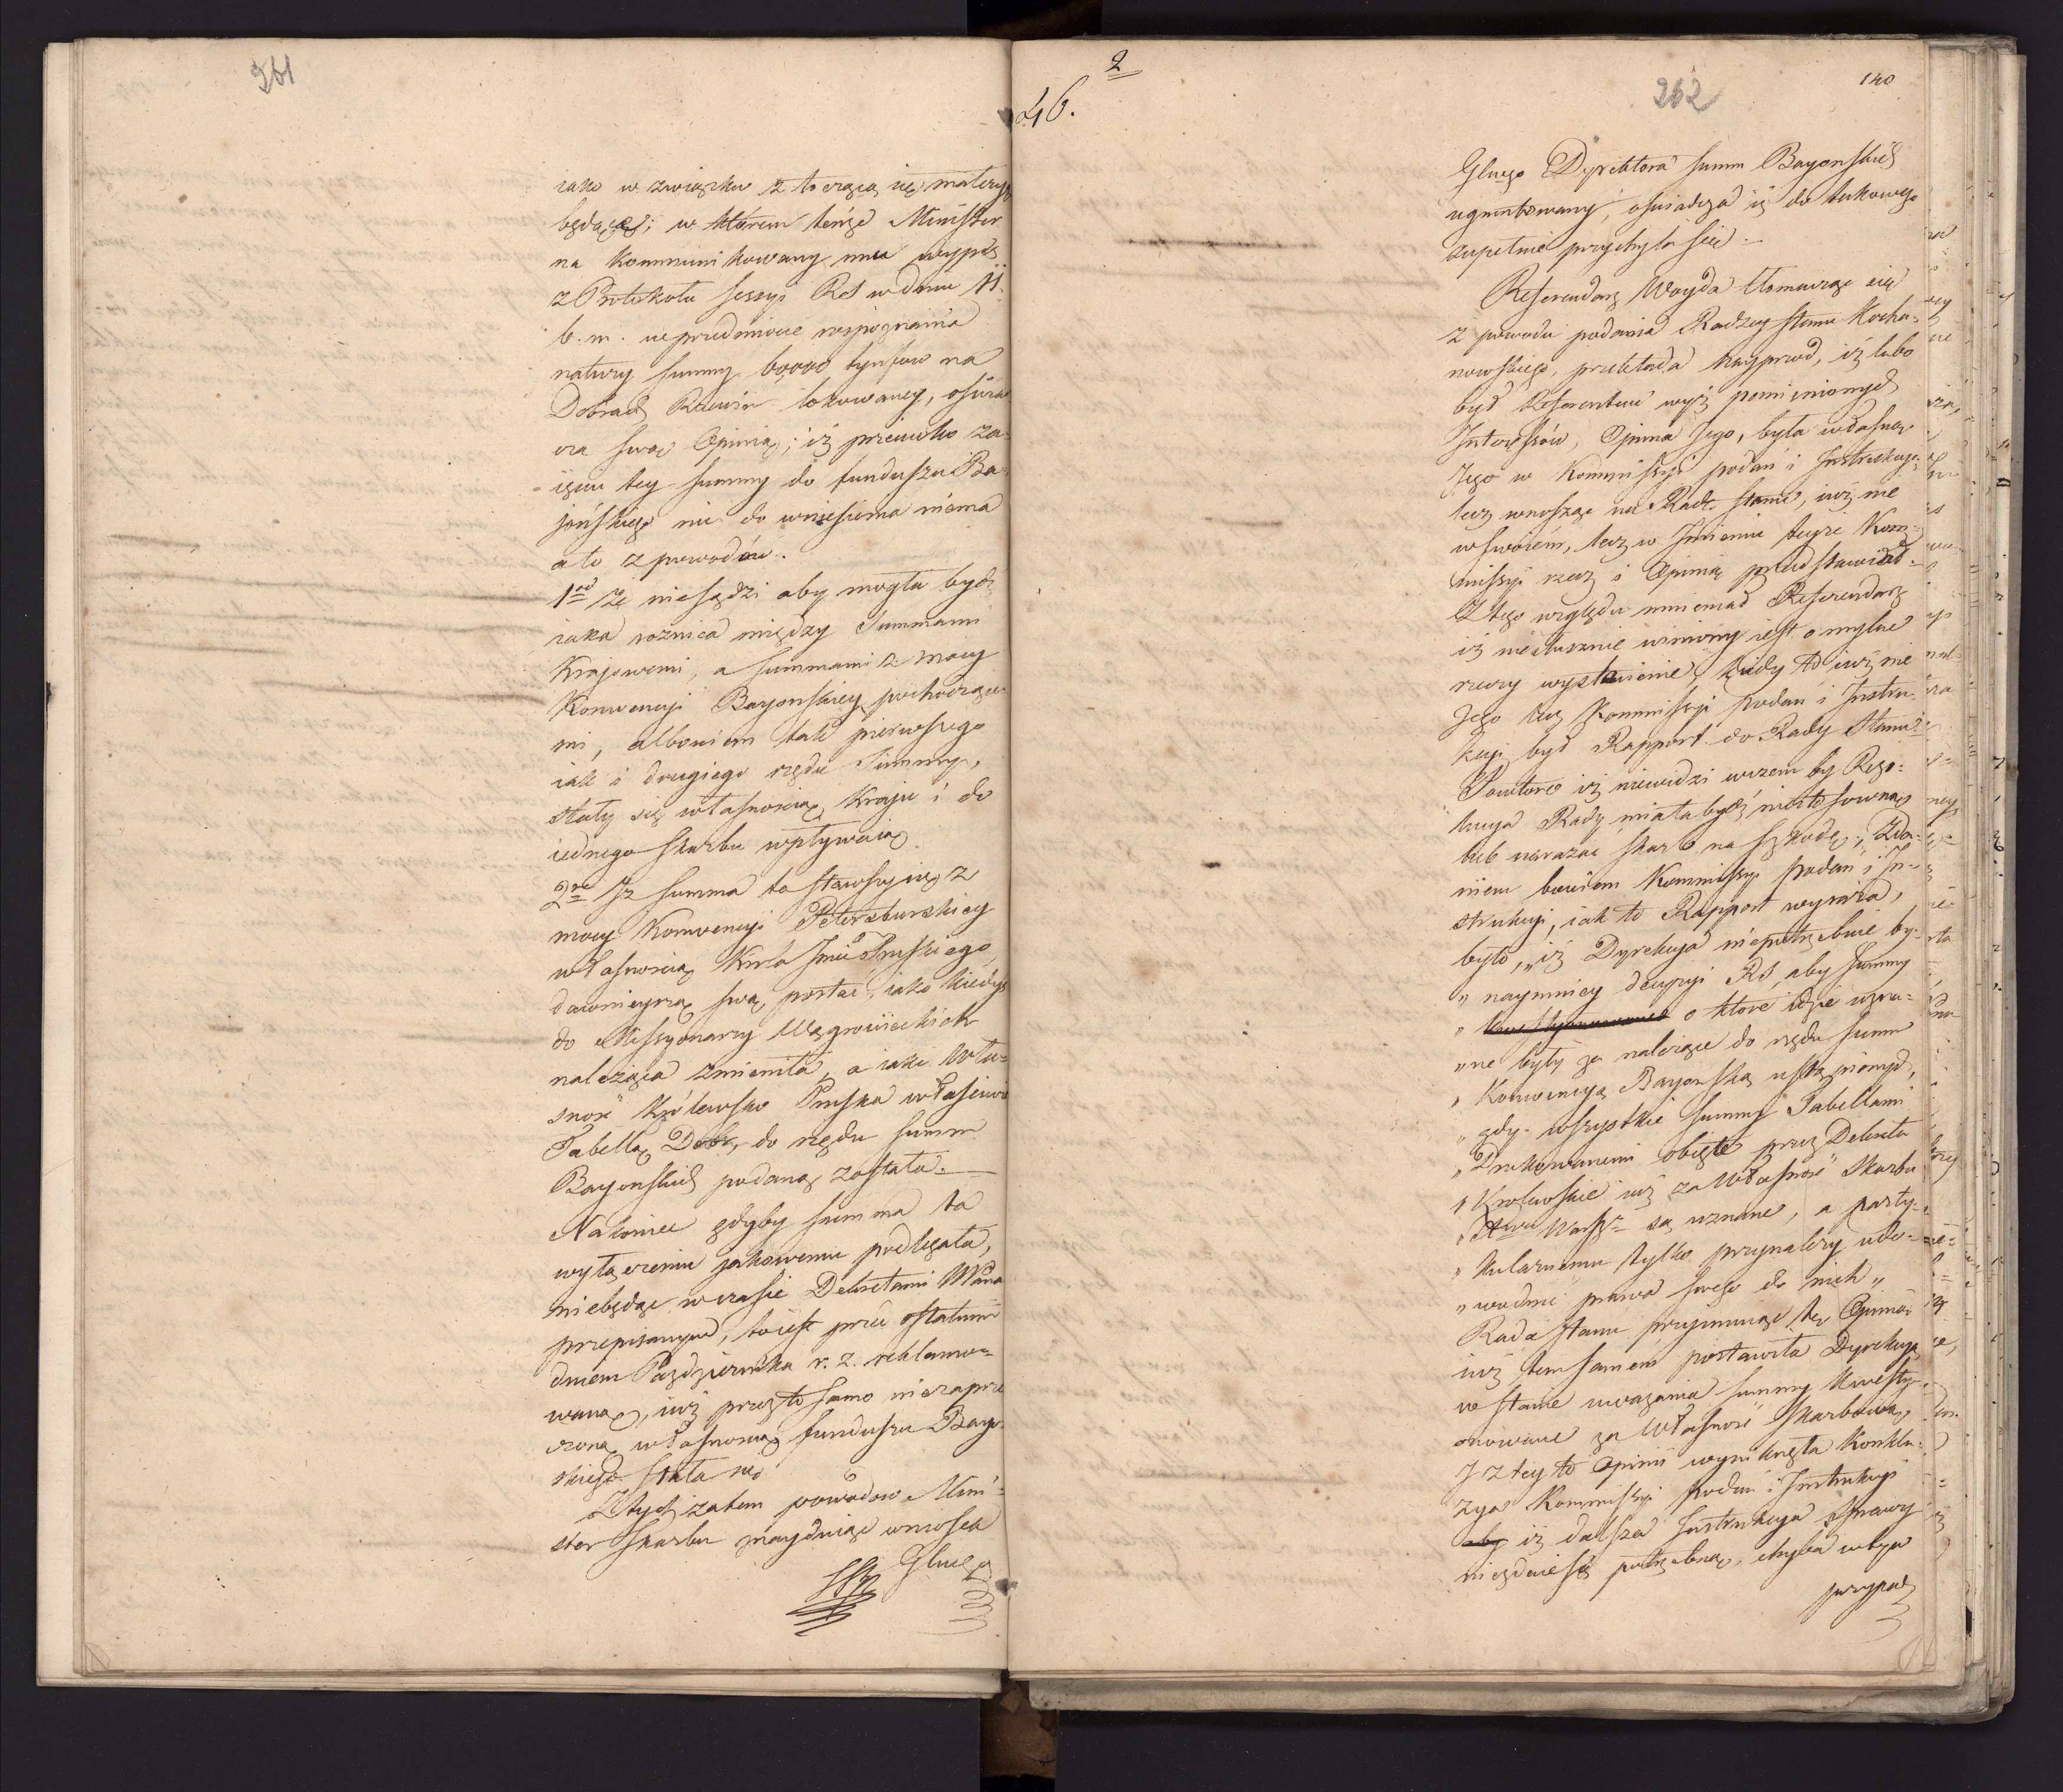 261
iako w związku z toczącą się materyą
będące; w którem tenże Minister
na kommunikowany mu wypis
z Protokołu Sessyi RS w dniu 11.
b. m. w przedmiocie rozpoznania
natury summy 60,000 tynfow na
Dobrach lokowaney, oświad
cza swą Opinią; iż przeciwko za-
ięciu tey summy do funduszu Ba-
jońskiego nic do wniesienia niema
a to z powodów.
1mo Ze niesądzi aby mogła bydź
iaka roznica między Summami
Krajowemi, a summami z mocy
Konwencyi Bayonskiey pochodzące-
mi, albowiem tak pierwszego
iak i drugiego rzędu Summy,
stały się własnością Kraju i do
iednego skarbu wpływaią.
2do Iz summa ta stawszy się z
mocy Konwencyi Petersburskiey
własnością Króla Jmci Pruskiego,
dawnieyszą swą postać, iako kiedyś
do Missyonarzy Wągrowieckich
należąca zmieniła, a iako Wła-
sność Królewsko Pruska właściwą
Tabellą do rzędu summ
Bayonskich podaną została.
Nakoniec gdyby summa ta
wyłączeniu jakowemu podlegała,
niebędąc w czasie Dekretami
przepisanym, to iest przed ostatnim
dniem Października r. z. reklamo-
waną, iuż przez to samo niezaprze
czoną własnością funduszu Bayon
skiego stała się
Z tych zatem powodow Mini-
ster Skarbu znayduiąc wniosek
Głneg
2
46.
262
140
Głnego Dyrektora summ Bayonskich
ugruntowany, oświadcza iż do takowego
zupełnie przychyla się.
Referendarz Woyda tłomacząc się
z powodu podania Radzcy Stanu Kocha-
nowskiego, przekłada nayprzod, iż lubo
był Referentem wyż pomienionych
Interessów, Opinia Jego, była własną
Jego w Kommissyi podań i Instrukcyi,
lecz wnosząc na Radę Stanu, iuż nie
w swoiem, lecz w Imieniu teyże Kom-
missyi rzecz i Opinią przedstawiał.
Z tego względu mniemał Referendarz
iż niesłusznie winiony iest o mylne
rzeczy wystawienie kiedy to iuż nie
Jego lecz Kommissyi Podań i Instru-
kcyi był Rapport do Rady Stanu.
Powtore iż niewidzi wczem by Rezo-
lucya Rady miała bydź niestosowną
lub narażać skarb na szkodę; Zda-
niem bowiem Kommissyi podań i In-
strukcyi, iak to Rapport wyraża,
było, „iż Dyrekcya niepotrzebuie by-
„ naymniey decyzyi RS aby summy
„ o ktore idzie uzna-
„ne były za należące do rzędu summ
„ Konwencyą Bayonską ustąpionych,
„ gdy wszystkie summy Tabellami
„ Drukowanemi obięte przez Dekreta
„ Krolewskie iuż za Własność Skarbu
„ Xtwa Warszgo są uznane, a party-
„ kularnemu tylko przynależy udo-
„ wodnić prawa swego do nich „
Rada Stanu przyimuiąc tę Opinią
iuż tem samem postawiła Dyrekcyą
w stanie uważania summy kwesty-
onowane za Własność Skarbową,
I z tey to Opinii wyniknęła Konklu-
zya Kommissyi Podań i Instrukcyi
aby iż dalsza Instrukcya Sprawy
niezdaie się potrzebną, chyba w tym
przypad